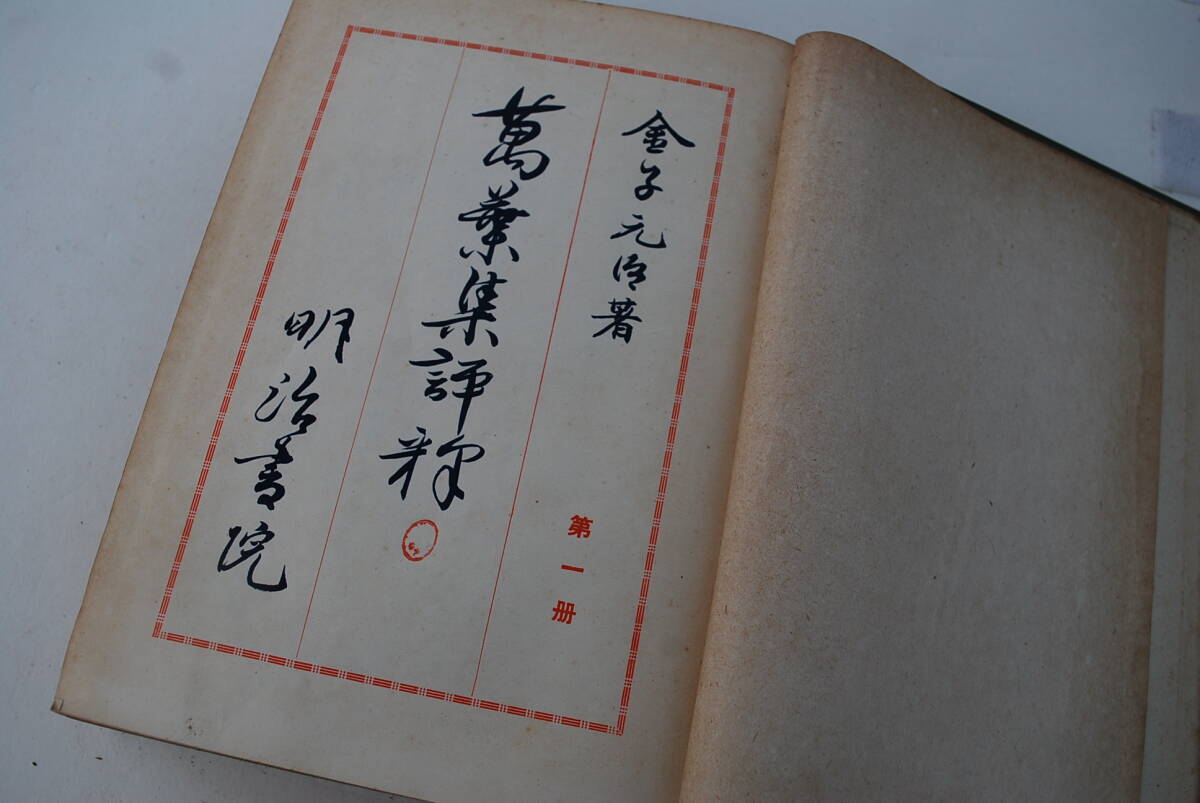 金子元臣著
第一册
萬葉集評釋
明治書院